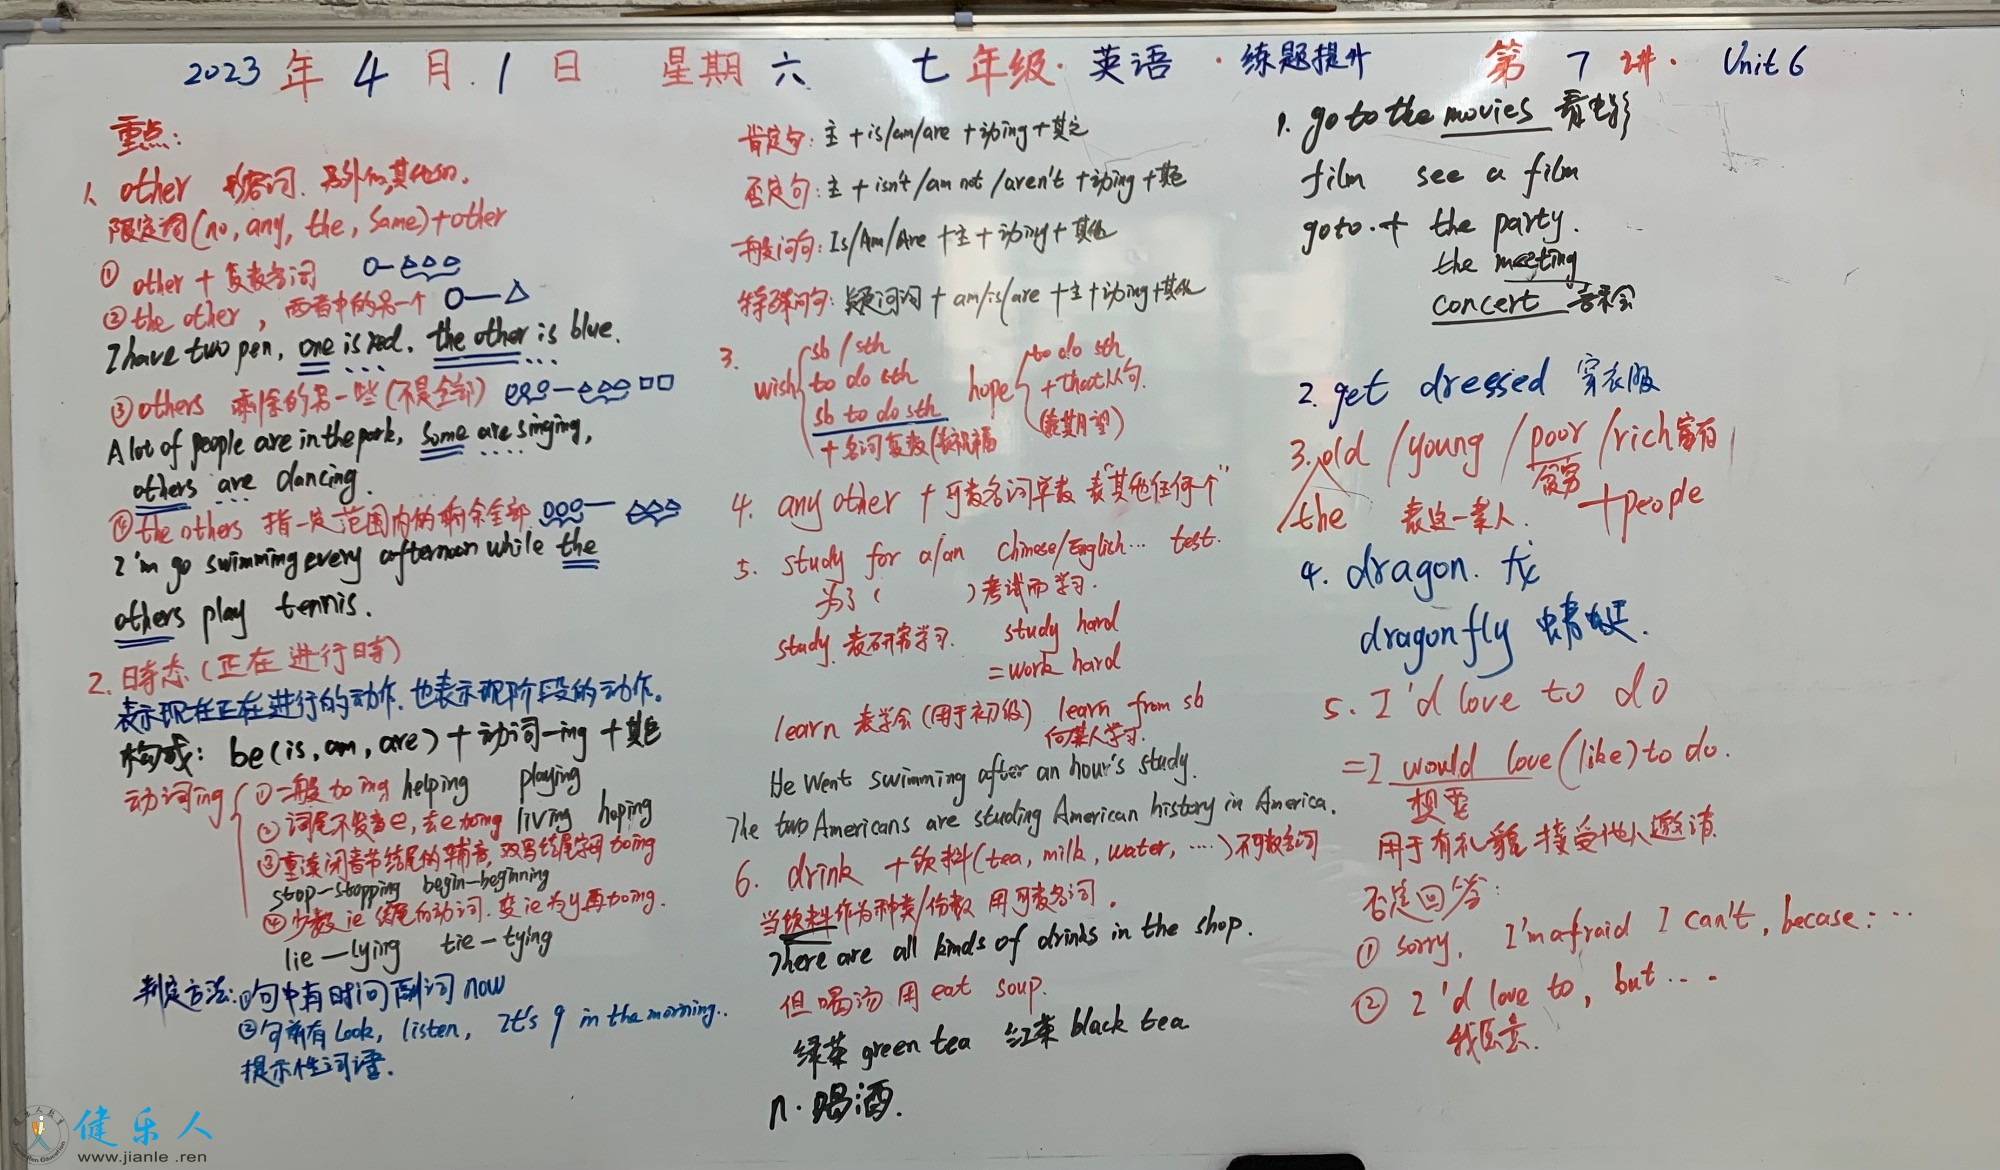 2023年4月1日 星期六 七年级·英语·练题提升 第7讲· Unit 6
重点:
1、other 形容词. 另外的,其他的.
限定词(no, any, the, same)+other
① other + 复数名词
② the other, 两者中的另一个
I have two pen, one is red. the other is blue.
③ others 剩余的另一些(不是全部)
A lot of people are in the park, some are singing,
others are dancing.
④ the others 指一定范围内的剩余全部.
I'm go swimming every afternoon while the
others play tennis.
2. 时态(正在进行时)
表示现在正在进行的动作.也表示现阶段的动作。
构成: be(is, am, are)+动词-ing+其它
动词ing
①一般 to ing helping playing
②词尾不发音e,去e to ing living hoping
③重读闭音节结尾的辅音,双写结尾字母 to ing
stop-stopping begin-beginning
④少数ie结尾的动词.变ie为y再to ing.
lie—lying tie-tying
判定方法:①句中有时间副词now
②句前有 Look, listen, It's 9 in the morning..
提示性词语.
肯定句: 主+is/am/are+动ing+其它
否定句: 主+isn't/am not/aren't+动ing+其它
一般问句: Is/Am/Are+主+动ing+其他
特殊问句: 疑问词+am/is/are+主+动ing+其他
3.
wish
sb/sth
to do sth
sb to do sth
+名词复数(表祝福
hope
to do sth
+that从句.
(表期望)
4. any other + 可数名词单数 表"其他任何个"
5. study for a/an Chinese/English... test.
为了( )考试而学习.
study. 表研究学习. study hard
=work hard
learn 表学会(用于初级) learn from sb
向某人学习.
He went swimming after an hour's study.
The two Americans are studing American history in America.
6. drink +饮料(tea, milk, water, ....)不可数名词
当饮料作为种类/份数 用可数名词.
There are all kinds of drinks in the shop.
但喝汤用 eat soup.
绿茶 green tea 红茶 black tea
n.喝酒.
1. go to the movies 看电影
film see a film
go to.+ the party.
the meeting
concert 音乐会
2. get dressed 穿衣服
3. old/young/poor/rich富有
贫穷
the 表这一类人. +people
4. dragon. 龙
dragonfly 蜻蜓.
5. I'd love to do
=I would love(like) to do.
想要
用于有礼貌接受他人邀请.
否定回答:
① sorry, I'm afraid I can't, becase: ...
② I'd love to, but ...
我愿意.
健乐人
www.jianle.ren